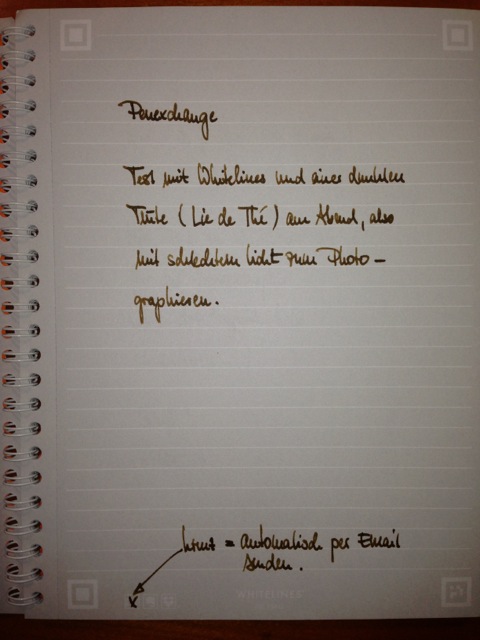 Penexchange
Test mit Whitelines und einer dunklen
Tinte (Lie de Thé) am Abend, also
mit schlechtem Licht zum Photo-
graphieren.
= automatisch per Email
senden.
WHITELINES